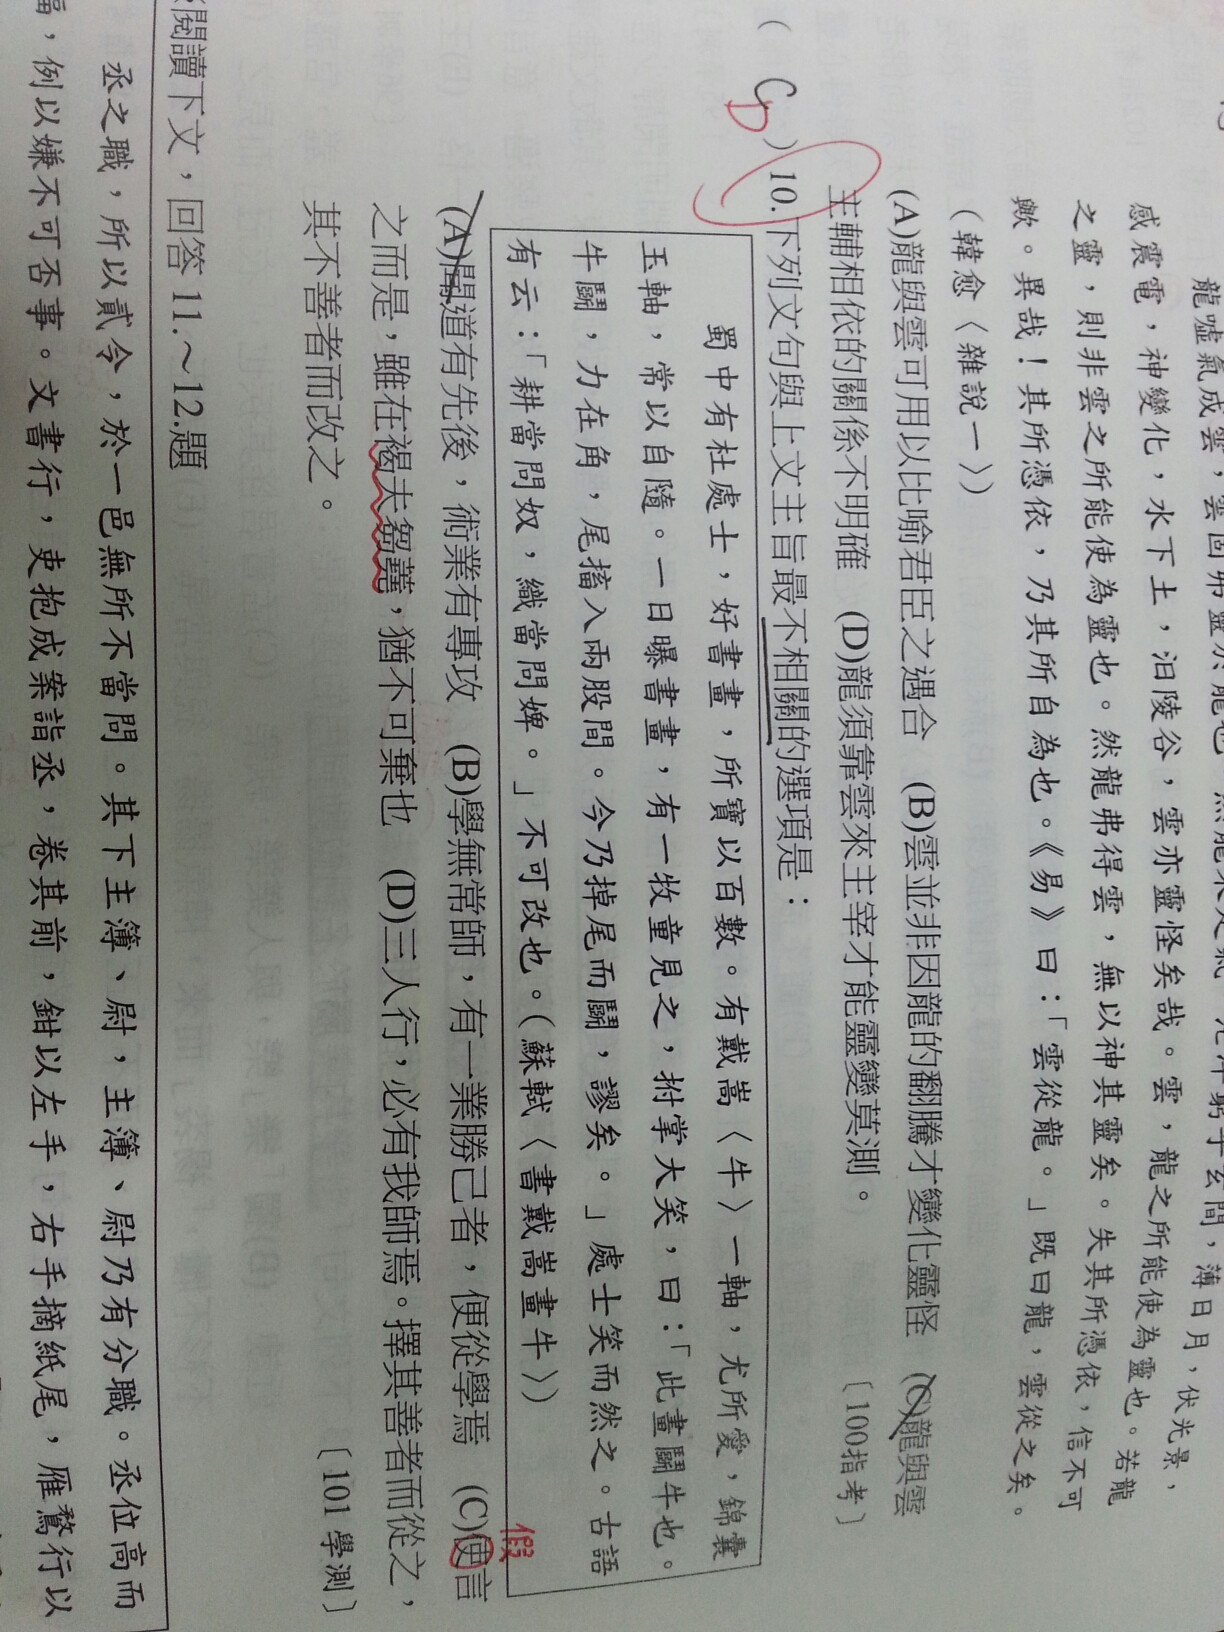 龍噓氣成雲，雲固弗靈於龍也。然龍乘是氣，茫洋窮乎玄間，薄日月，伏光景，
感震電，神變化，水下土，汩陵谷，雲亦靈怪矣哉。雲，龍之所能使為靈也。若龍
之靈，則非雲之所能使為靈也。然龍弗得雲，無以神其靈矣。失其所憑依，信不可
歟。異哉！其所憑依，乃其所自為也。《易》曰：「雲從龍。」既曰龍，雲從之矣。
（韓愈〈雜說一〉）
(A)龍與雲可用以比喻君臣之遇合　(B)雲並非因龍的翻騰才變化靈怪　(C)龍與雲
主輔相依的關係不明確　(D)龍須靠雲來主宰才能靈變莫測。〔100指考〕
（ C D ）10.下列文句與上文主旨最不相關的選項是：
蜀中有杜處士，好書畫，所寶以百數。有戴嵩〈牛〉一軸，尤所愛，錦囊
玉軸，常以自隨。一日曝書畫，有一牧童見之，拊掌大笑，曰：「此畫鬭牛也。
牛鬭，力在角，尾搐入兩股間。今乃掉尾而鬭，謬矣。」處士笑而然之。古語
有云：「耕當問奴，織當問婢。」不可改也。（蘇軾〈書戴嵩畫牛〉）
假
(A)聞道有先後，術業有專攻　(B)學無常師，有一業勝己者，便從學焉　(C)使言
之而是，雖在褐夫芻蕘，猶不可棄也　(D)三人行，必有我師焉。擇其善者而從之，
其不善者而改之。〔101 學測〕
閱讀下文，回答 11.～12.題
丞之職，所以貳令，於一邑無所不當問。其下主簿、尉，主簿、尉乃有分職。丞位高而
偪，例以嫌不可否事。文書行，吏抱成案詣丞，卷其前，鉗以左手，右手摘紙尾，雁鶩行以